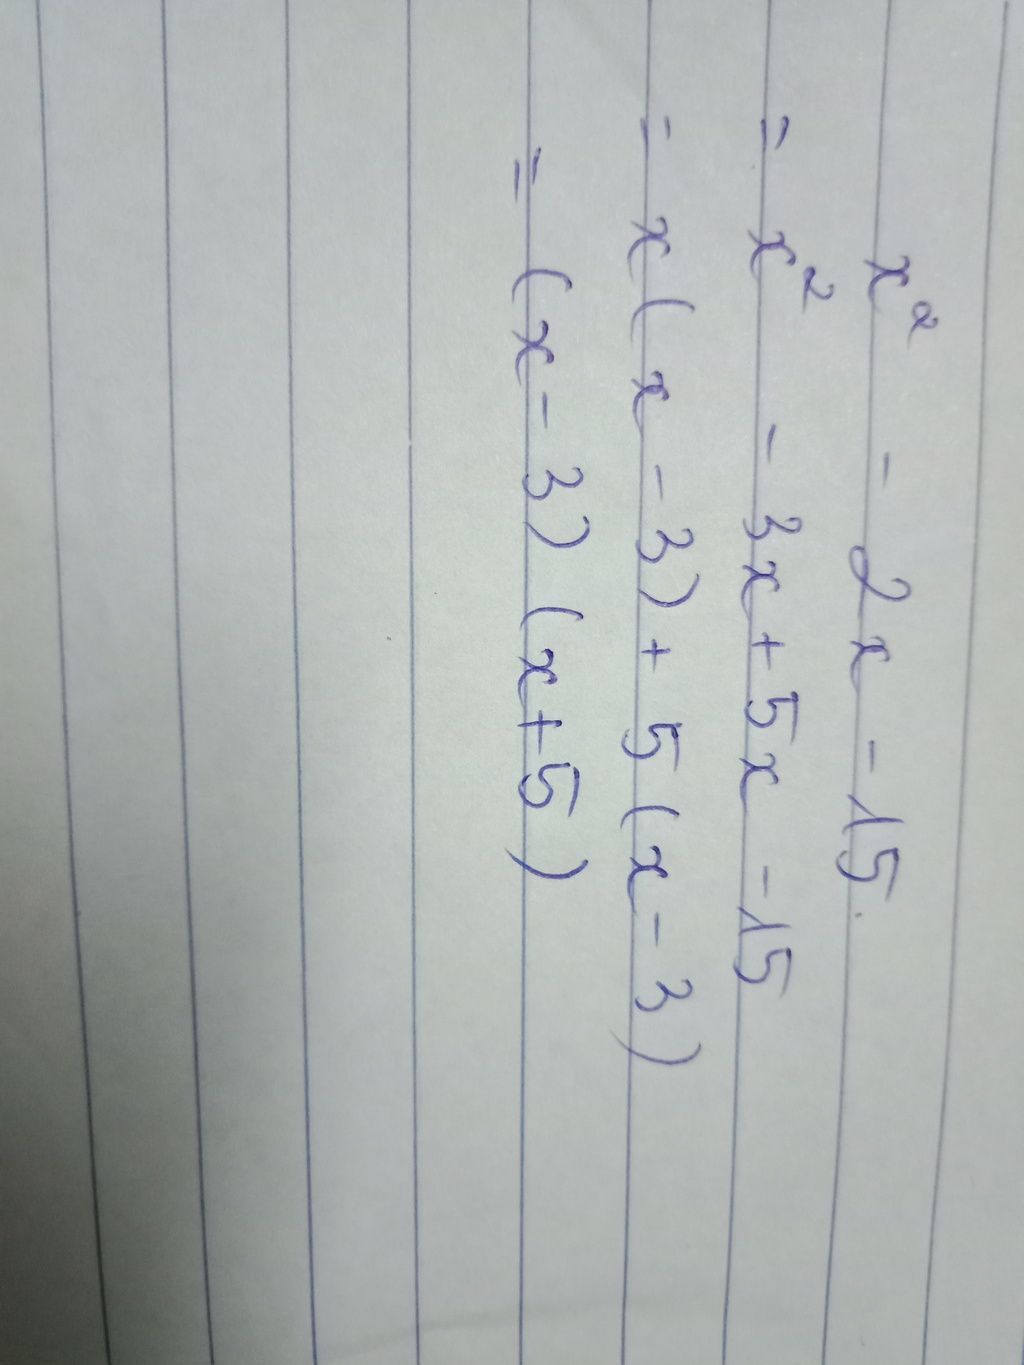 x² - 2x - 15.
= x² - 3x + 5x - 15
= x(x - 3) + 5(x - 3)
= (x - 3) (x + 5)